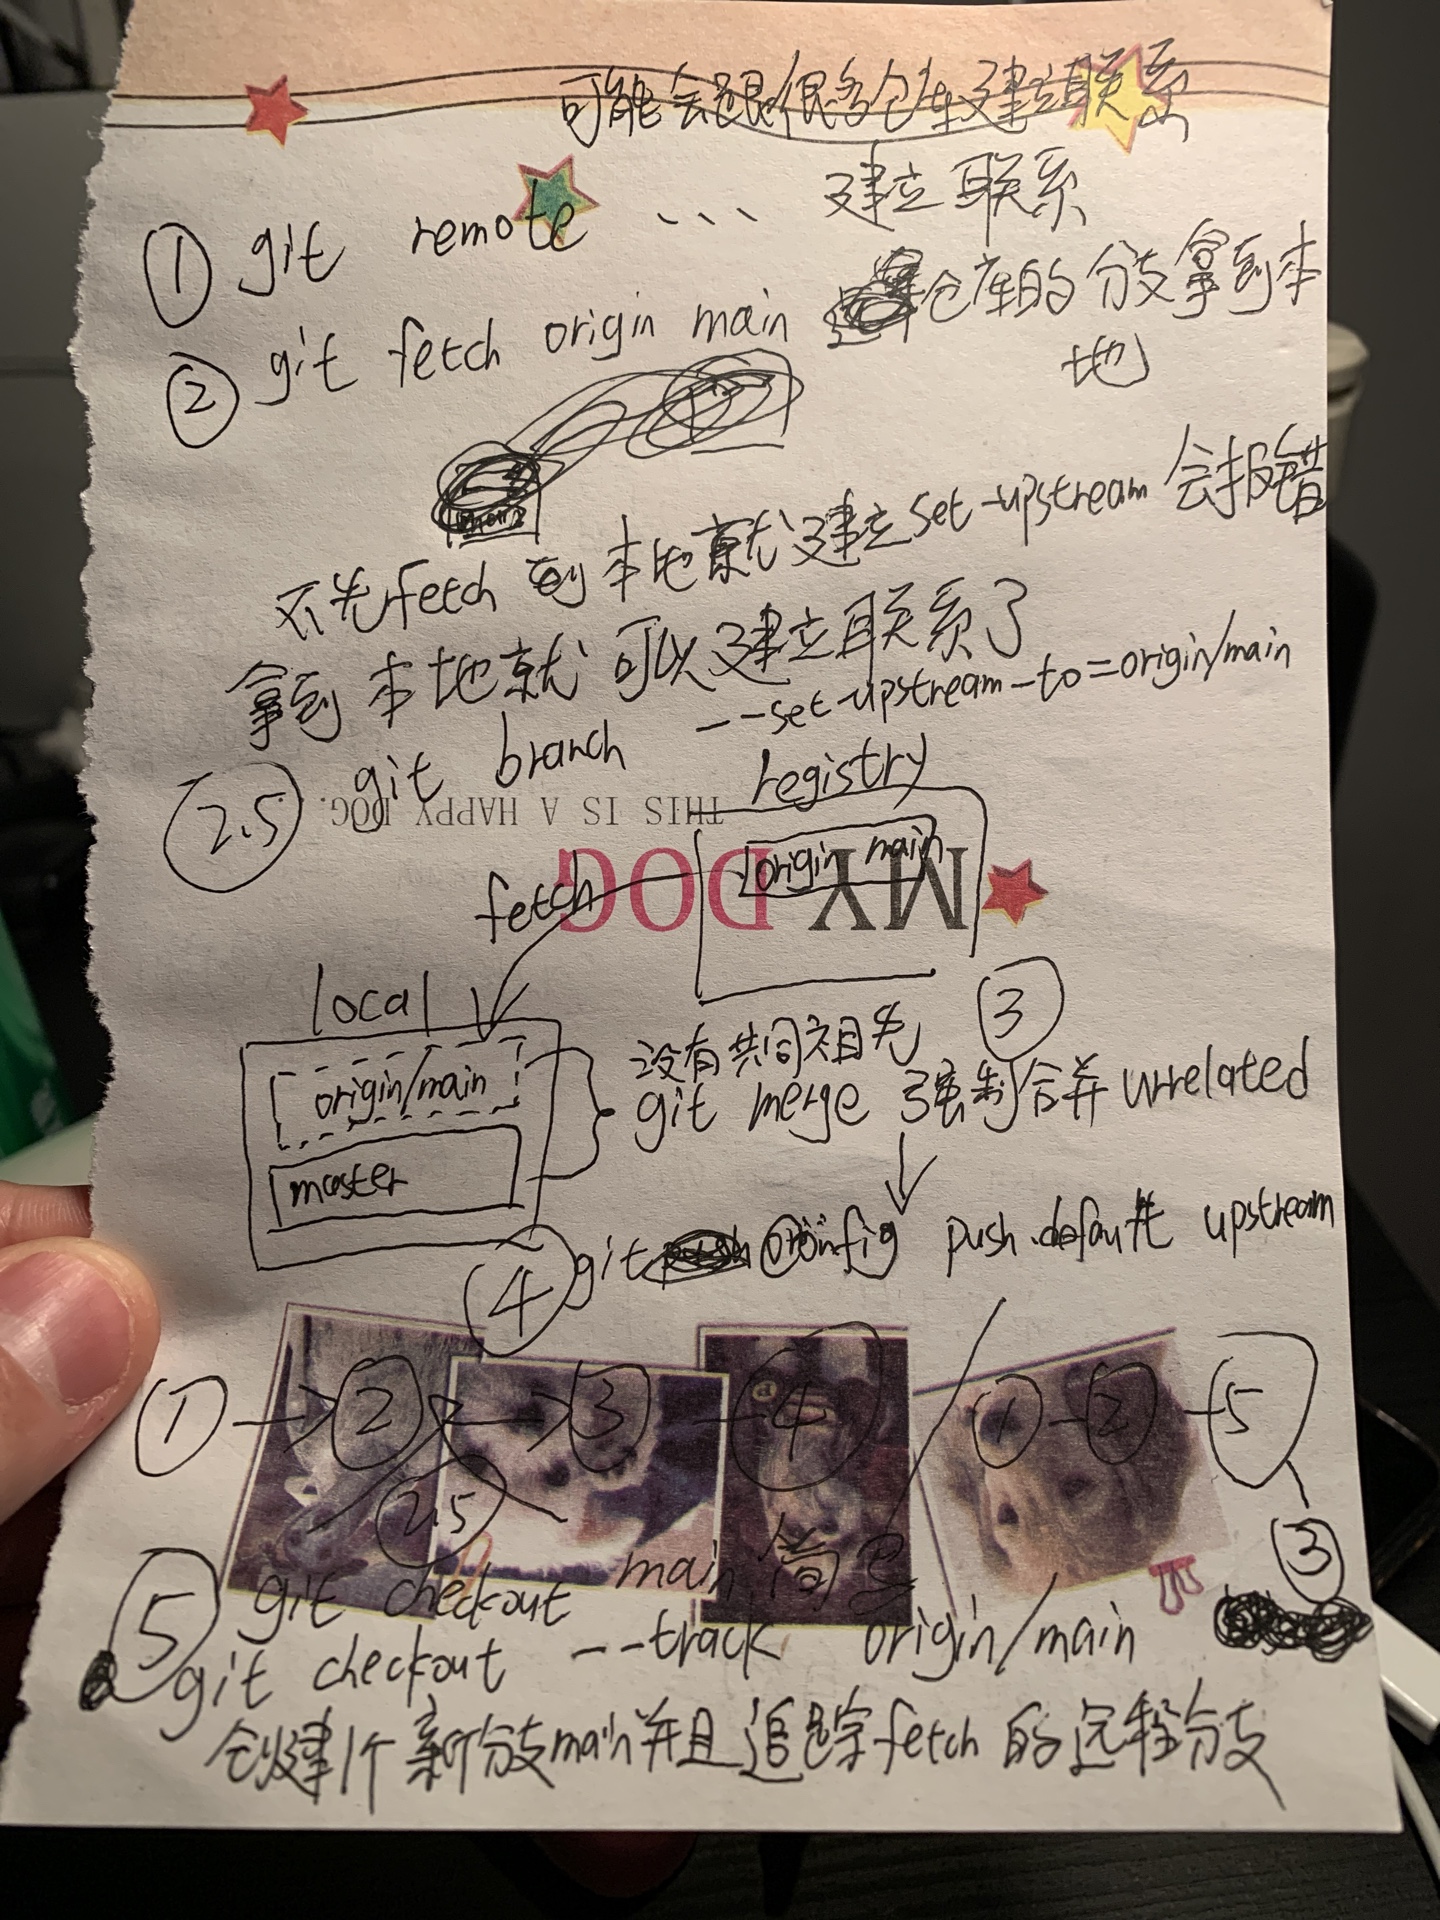 可能会跟很多仓库建立联系
① git remote ... 建立联系
② git fetch origin main 仓库的分支拿到本
地
不先fetch到本地就建立set-upstream会报错
拿到本地就可以建立联系了
2.5 git branch --set-upstream-to=origin/main
registry
THIS IS A HAPPY DOG.
MY DOG
origin main
fetch
local
origin/main
master
没有共同祖先 ③
git merge 强制合并 unrelated
④ git config push.default upstream
① → ② → ③ — ④ / ① — ② — 5
2.5
③
5 git checkout main 简写
git checkout --track origin/main
创建1个新分支main并且追踪fetch的远程分支